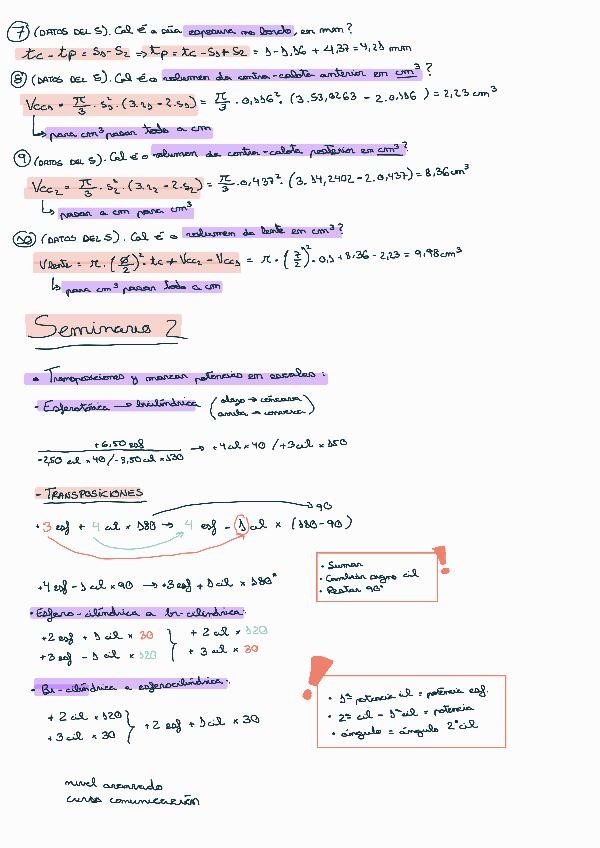 7 (DATOS DEL 5). Cal é a súa espesura no bordo, en mm?
tc - tp = s1 - s2 ⇒ tp = tc - s1 + s2 = 1 - 1,16 + 4,37 = 4,21 mm
8 (DATOS DEL 5). Cal é o volumen da contra-calota anterior en cm³?
Vcc1 = π/3 · s1² · (3·r1 - 2·s1) = π/3 · 0,116² · (3·53,0263 - 2·0,116) = 2,23 cm³
↳ para cm³ pasar todo a cm
9 (DATOS DEL 5). Cal é o volumen da contra-calota posterior en cm³?
Vcc2 = π/3 · s2² · (3·r2 - 2·s2) = π/3 · 0,437² · (3·14,2402 - 2·0,437) = 8,36 cm³
↳ pasar a cm para cm³
10 (DATOS DEL 5). Cal é o volumen da lente en cm³?
Vlente = π · (ø/2)² · tc + Vcc2 - Vcc1 = π · (7/2)² · 0,1 + 8,36 - 2,23 = 9,98 cm³
↳ para cm³ pasar todo a cm
Seminario 2
• Transposiciones y marcar potencias en escalas:
- Esferotórica → bicilíndrica (abajo → cóncava
arriba → convexa)
+6,50 esf
-2,50 cil × 40 / -3,50 cil × 130 → +4 cil × 40 / +3 cil × 150
- TRANSPOSICIONES
90
• 3 esf + 1 cil × 180 → 4 esf - 1 cil × (180 - 90)
• Sumar
• Cambiar signo cil
• Restar 90°
!
+4 esf - 1 cil × 90 → +3 esf + 1 cil × 180°
• Esfero-cilíndrica a bi-cilíndrica:
+2 esf + 1 cil × 30 } +2 cil × 120
+3 esf - 1 cil × 120 } +3 cil × 30
• Bi-cilíndrica a esferocilíndrica:
+2 cil × 120 } +2 esf + 1 cil × 30
+3 cil × 30
!
• 1ª potencia cil = potencia esf.
• 2º cil - 1º cil = potencia
• ángulo = ángulo 2º cil
nivel avanzado
curso comunicación